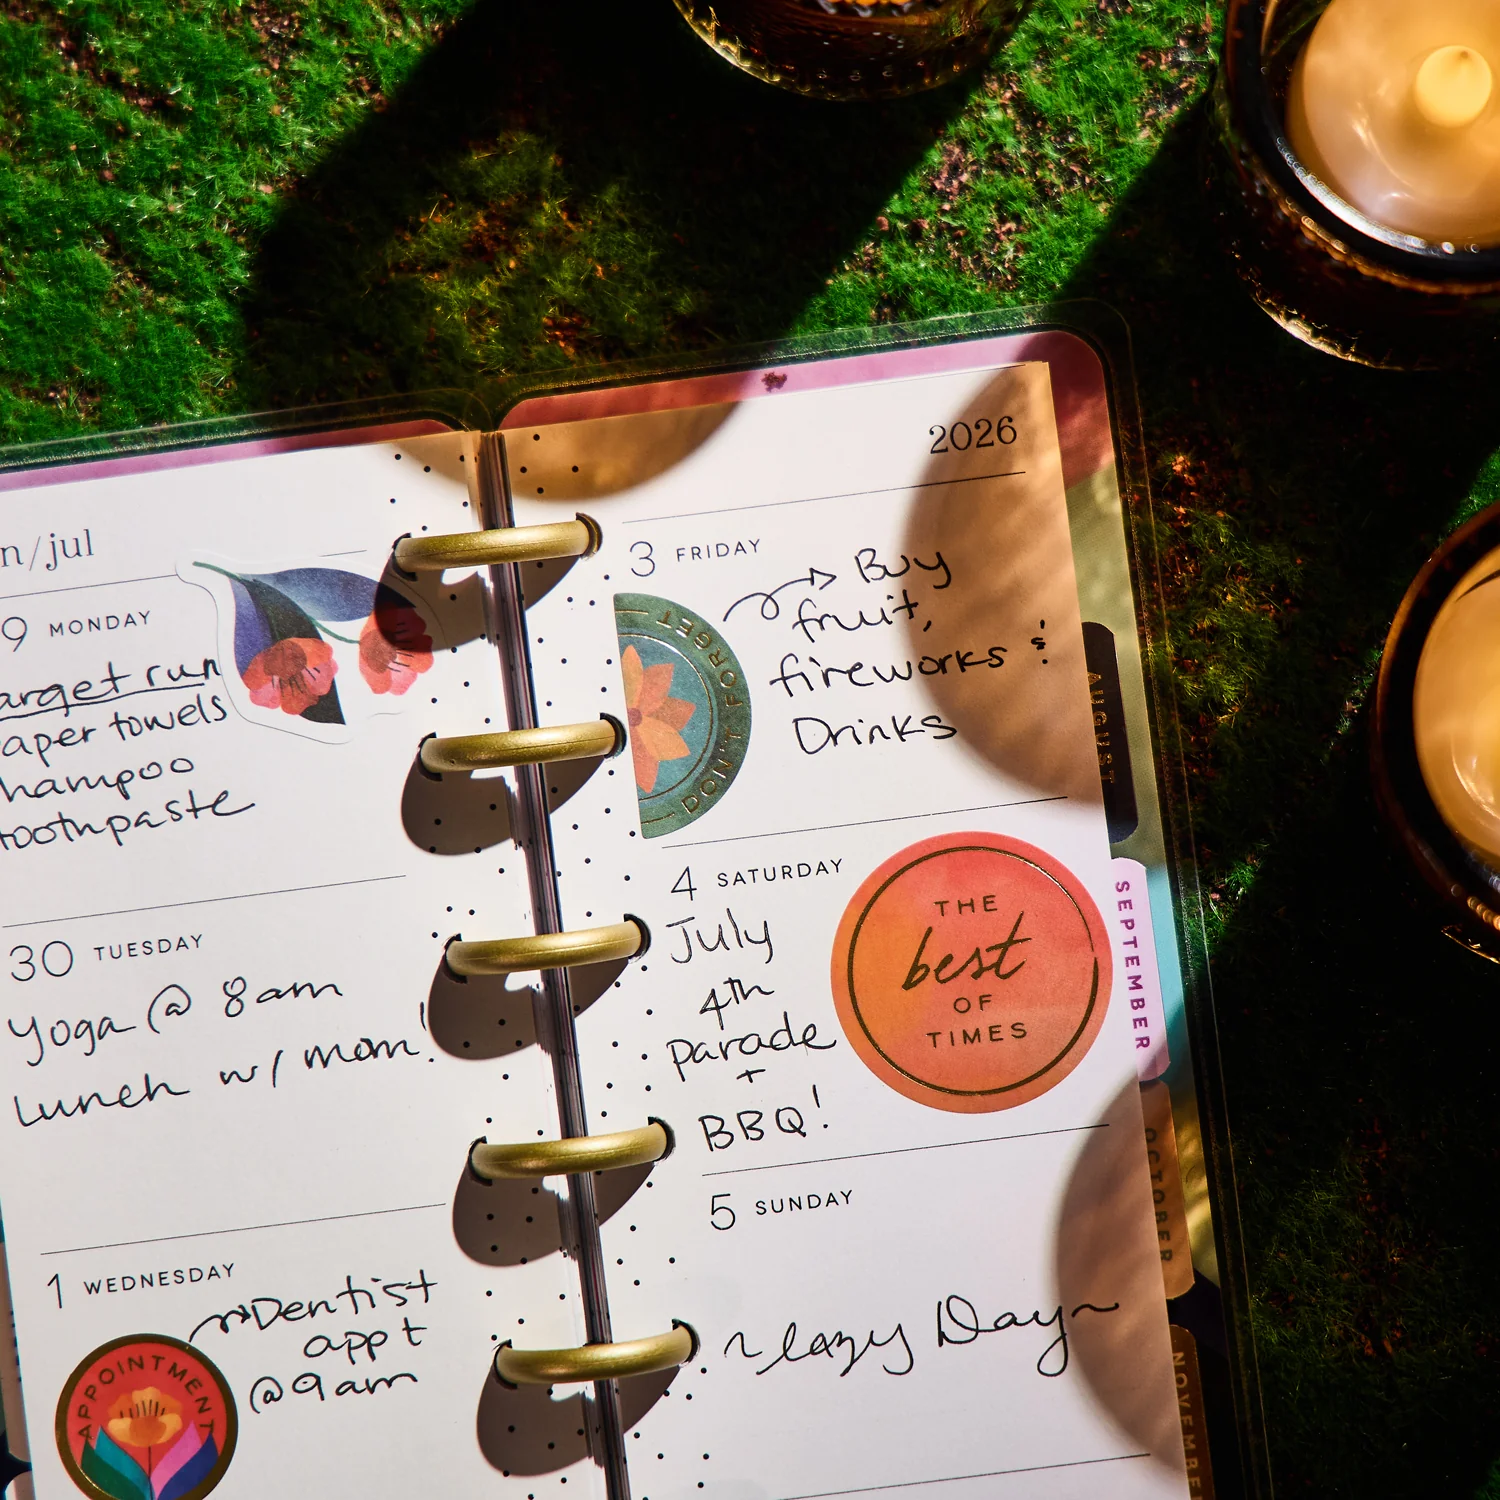 n/jul
9 MONDAY
arget run
aper towels
hampoo
toothpaste
30 TUESDAY
Yoga @ 8am
Lunch w/ mom!
1 WEDNESDAY
Dentist
appt
@9am
APPOINTMENT
2026
3 FRIDAY
DON'T FORGET
Buy
fruit,
fireworks &
Drinks
4 SATURDAY
July
4th
parade
+
BBQ!
THE
best
OF
TIMES
5 SUNDAY
~lazy Day~
AUGUST
SEPTEMBER
OCTOBER
NOVEMBER